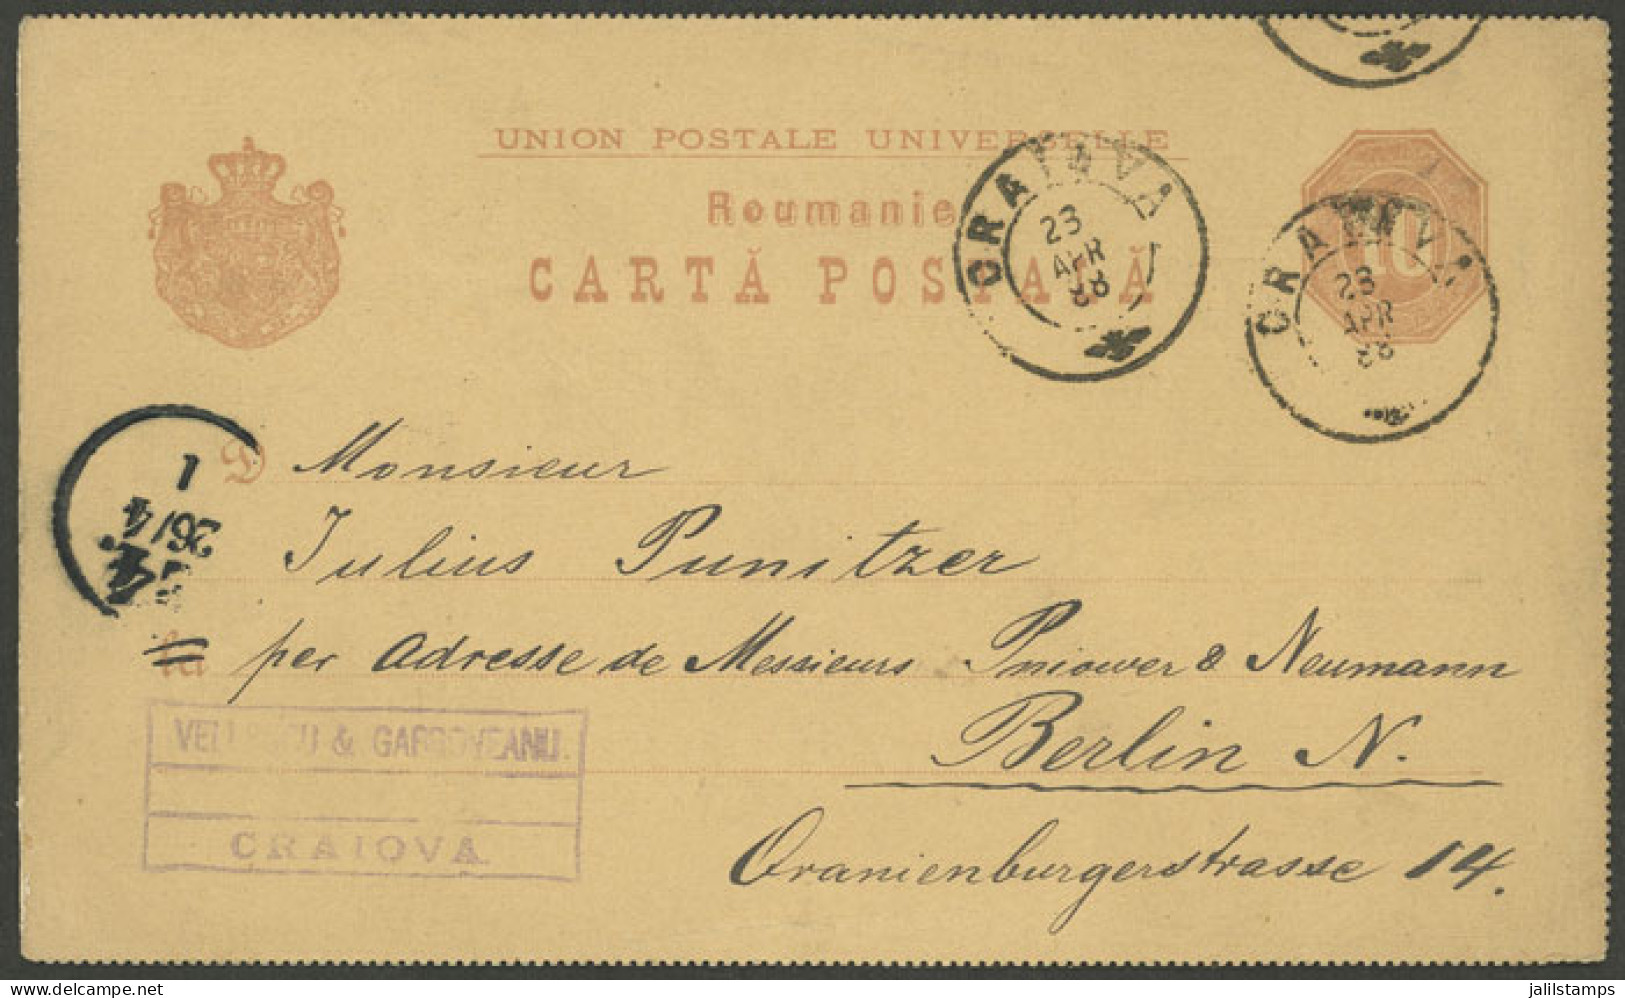 UNION POSTALE UNIVERSELLE
Roumanie
CARTĂ POSTALĂ
10
CRAIOVA
23
APR
88
CRAIOVA
23
APR
88
1
26/4
D Monsieur
Julius Punitzer
per Adresse de Messieurs Pniower & Neumann
Berlin N.
Oranienburgerstrasse 14.
& GARBOVEANU
CRAIOVA
delcampe.net
jalilstamps